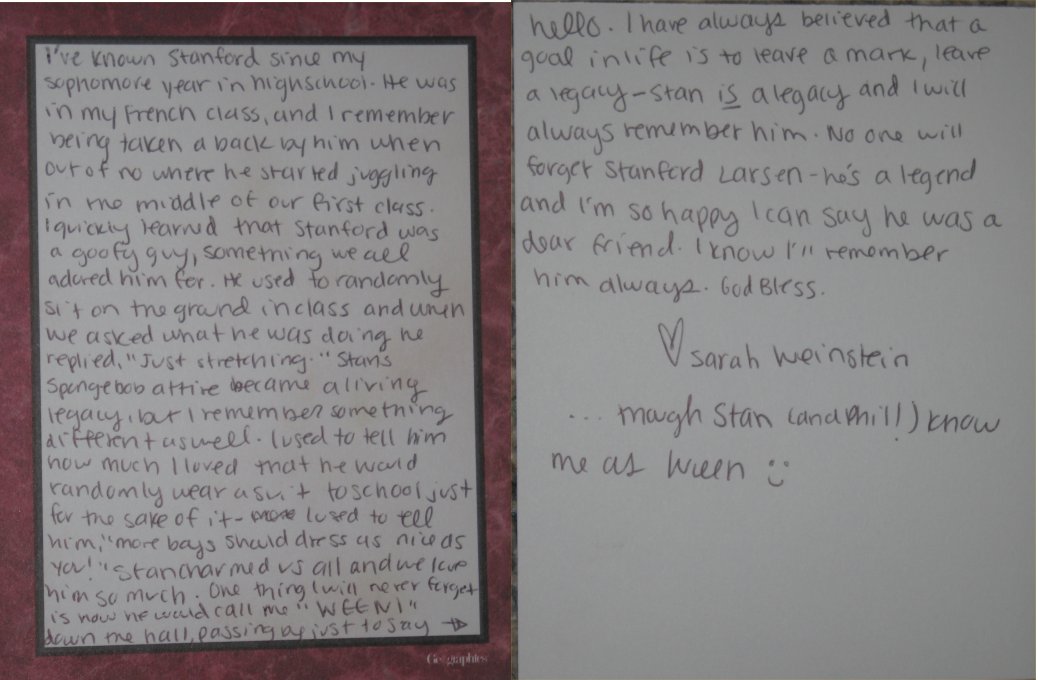 I've known Stanford since my
sophomore year in highschool. He was
in my French class, and I remember
being taken a back by him when
out of no where he started juggling
in the middle of our first class.
I quickly learned that Stanford was
a goofy guy, something we all
adored him for. He used to randomly
sit on the ground in class and when
we asked what he was doing he
replied, "Just stretching." Stan's
Spongebob attire became a living
legacy, but I remember something
different as well. I used to tell him
how much I loved that he would
randomly wear a suit to school just
for the sake of it - I used to tell
him, "more boys should dress as nice as
you!" Stan charmed us all and we love
him so much. One thing I will never forget
is how he would call me "WEEN!"
down the hall, passing by just to say →
Geographics
hello. I have always believed that a
goal in life is to leave a mark, leave
a legacy - Stan is a legacy and I will
always remember him. No one will
forget Stanford Larsen - he's a legend
and I'm so happy I can say he was a
dear friend. I know I'll remember
him always. God Bless.
♡ Sarah Weinstein
... though Stan (and Phil!) know
me as Ween :)